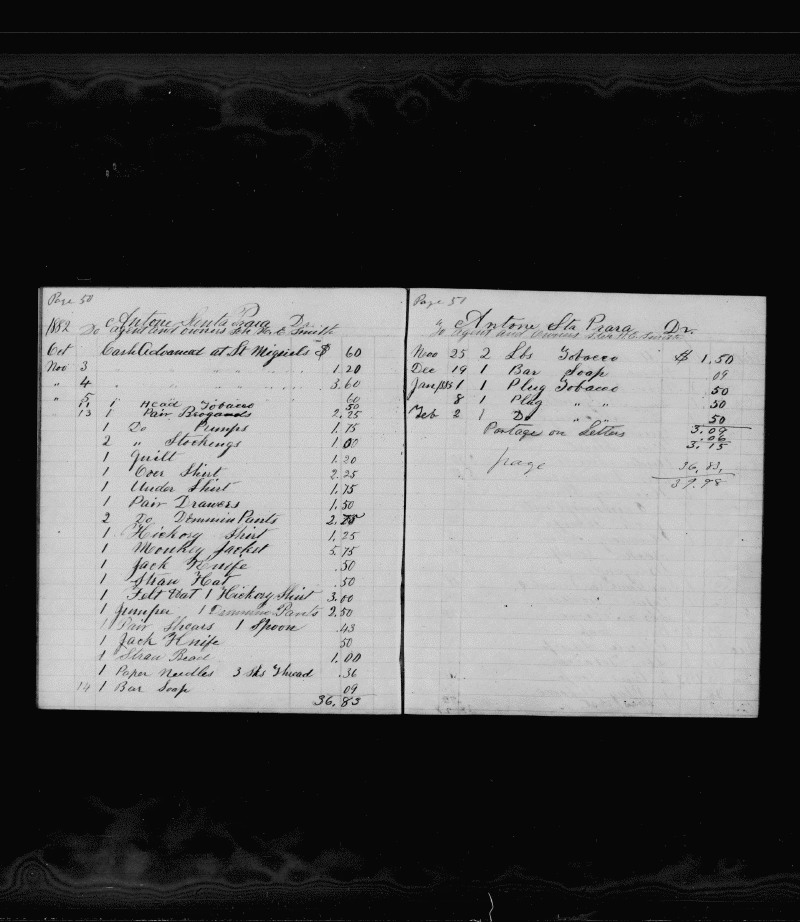 Page 50
Antone Dr.
1882 To agent and owners Sch H. C. Smith
Oct Cash Advanced at St Migiels $ 60
Nov 3 " " " " 1.20
" 4 " " " " 3.60
" 5 60
11 1 Head Tobacco 50
13 1 Pair Brogands 2.25
1 Do Pumps 1.75
2 " Stockings 1.00
1 Quilt 1.20
1 Over Shirt 2.25
1 Under Shirt 1.75
1 Pair Drawers 1.50
2 Do Demmin Pants 2.75
1 Hickory Shirt 1.25
1 Monkey Jacket 5.75
1 Jack Knife .50
1 Straw Hat .50
1 Felt Hat 1 Hickory Shirt 3.00
1 Jumper 1 Demmin Pants 2.50
1 Pair Shears 1 Spoon .43
1 Jack Knife 50
1 Straw 1.00
1 Paper Needles 3 Sks Thread .36
14 1 Bar Soap 09
36.83
Page 51
Antone Sta Prara Dr.
To Agent and Owners
Nov 25 2 Lbs Tobacco $ 1.50
Dec 19 1 Bar Soap 09
Jan/883 1 1 Plug Tobacco .50
8 1 Plug " " .50
Feb 2 1 Do " " 50
3.09
Postage on Letters .06
3.15
page 36,83,
39.98